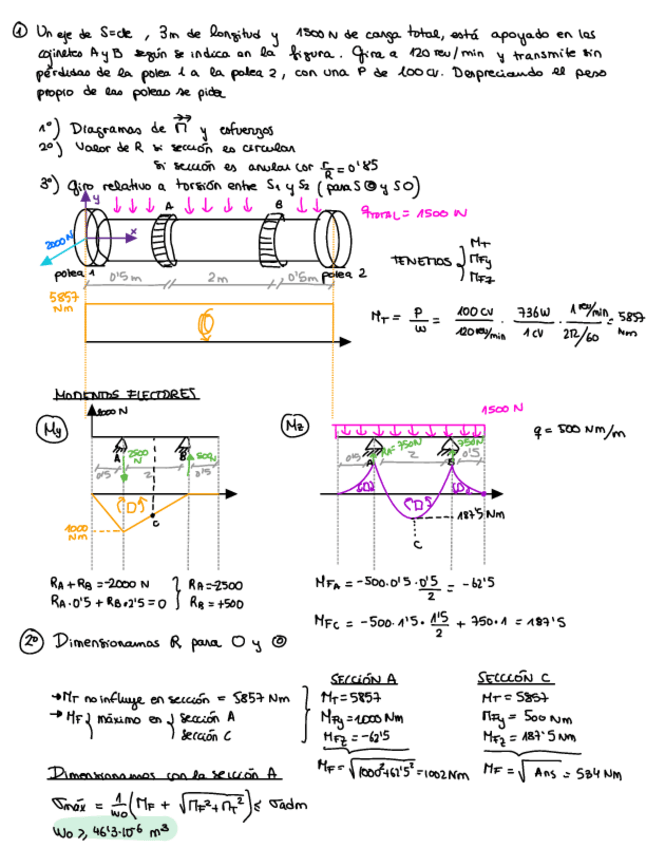 ① Un eje de S=cte, 3m de longitud y 1500 N de carga total, está apoyado en los
cojinetes A y B según se indica en la figura. Gira a 120 rev/min y transmite sin
pérdidas de la polea 1 a la polea 2, con una P de 100 CV. Despreciando el peso
propio de las poleas se pide
1º) Diagramas de M y esfuerzos
2º) Valor de R si sección es circular
Si sección es anular con r/R = 0'85
3º) Giro relativo a torsión entre S1 y S2 (para S ◎ y S O)
y
x
A
B
2000N
qTOTAL = 1500 N
polea 1
0'5m
2m
0'5m
polea 2
TENEMOS } MT
MFy
MFz
5857 Nm
MT = P/ω = 100CV/120rev/min · 736W/1CV · 1rev/min/2π/60 = 5857 Nm
MOMENTOS FLECTORES
My
2000 N
A
B
2500 N
500N
0'5
2
0'5
1000 Nm
C
Mz
1500 N
RA=750N
750N
0'5
2
0'5
A
B
187'5 Nm
C
q = 500 Nm/m
RA + RB = -2000 N } RA = -2500
RA·0'5 + RB·2'5 = 0 } RB = +500
MFA = -500·0'5·0'5/2 = -62'5
MFC = -500·1'5·1'5/2 + 750·1 = 187'5
2º Dimensionamos R para O y ◎
→ MT no influye en sección = 5857 Nm
→ MF } máximo en } sección A
sección C
SECCIÓN A
MT = 5857
MFy = 1000 Nm
MFz = -62'5
MF = √1000²+61'5² = 1002 Nm
SECCIÓN C
MT = 5857
MFy = 500 Nm
MFz = 187'5 Nm
MF = √Ans = 534 Nm
Dimensionamos con la sección A
σmáx = 1/W0 (MF + √MF² + MT²) ≤ σadm
W0 ≥ 46'3·10⁻⁶ m³